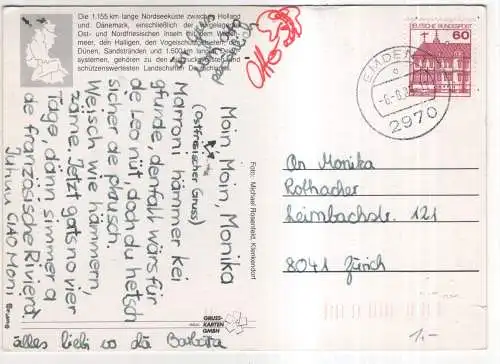 Die 1.155 km lange Nordseeküste zwischen Holland
und Dänemark, einschließlich der vorgelagerten
Ost- und Nordfriesischen Inseln mit dem Watten-
meer, den Halligen, den Vogelschutzgebieten, den
Dünen, Sandstränden und 1.500 km langen Deich-
systemen, gehören zu den
schützenswertesten Landschaften Deutschlands.
Otto
Moin, Moin, Monika
(Ostfriesischer Gruss)
Marroni hämmer kei
gfunde, denfall wärs für
de Leo nüt, doch du hetsch
sicher de plausch.
Weisch wie hämmern,
zäme. Jetzt gats no vier
Täge, dänn simmer a
de französische Riviera.
Julian CIAO Moni
Bruno
alles liebi vo dä Barbara
Foto: Michael Rosenfeld, Klenkendorf
GRUSS-
KARTEN
GMBH
60
EMDEN
2970
An Monika
Rothacher
Leimbachstr. 121
8041 Zürich
1.-